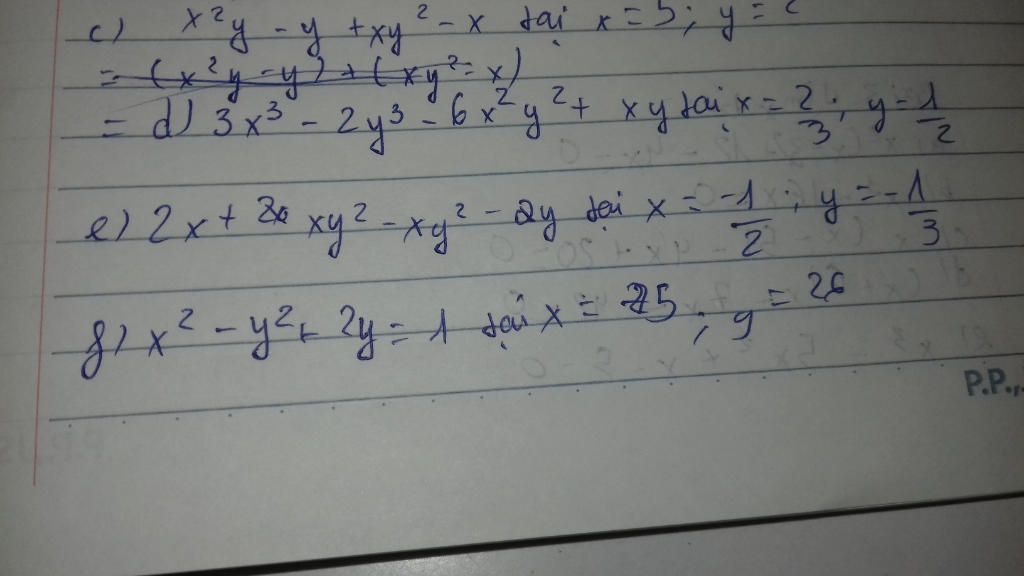 c) x²y - y + xy² - x tại x = 5; y = 2
= (x²y - y) + (xy² = x)
= d) 3x³ - 2y³ - 6x²y² + xy tại x = 2/3; y = 1/2
e) 2x + xy² - xy² - 2y tại x = -1/2; y = -1/3
f) x² - y² + 2y = 1 tại x = 75; y = 26
P.P.,